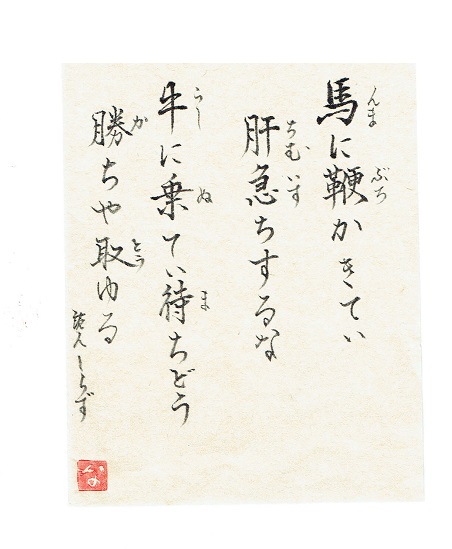 んま ぶち
馬に鞭かきてぃ
ちむ いす
肝急ちするな
うし ぬ ま
牛に乗てぃ待ちどぅ
か とぅ
勝ちや取ゆる
詠人しらず